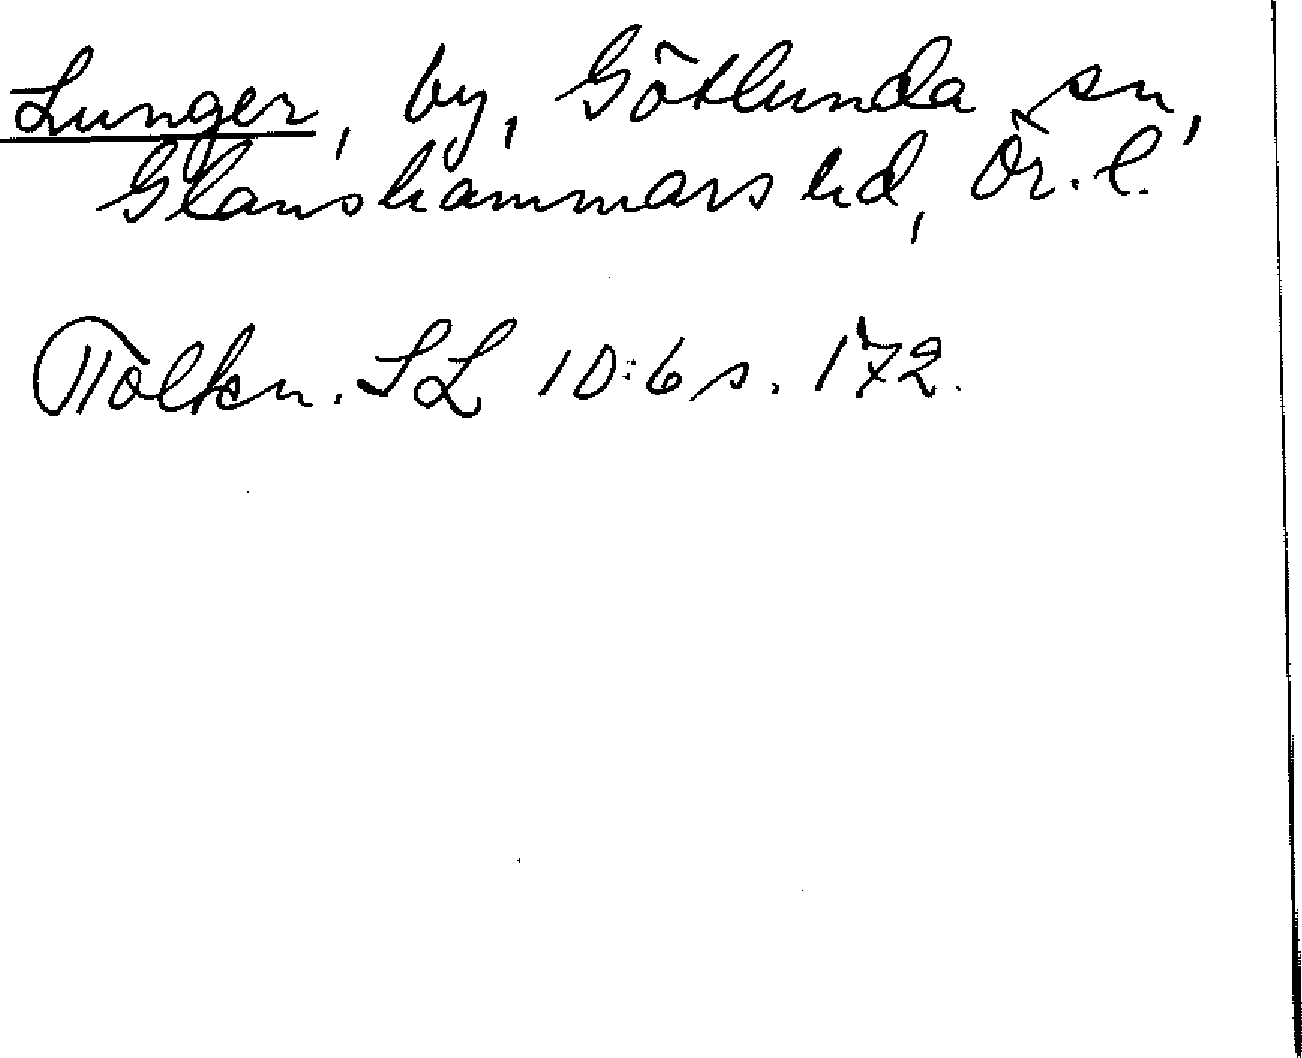 Lunger, by, Götlunda sn,
Glanshammars hd, Ör. l.
Tolkn. SL 10:6 s. 172.